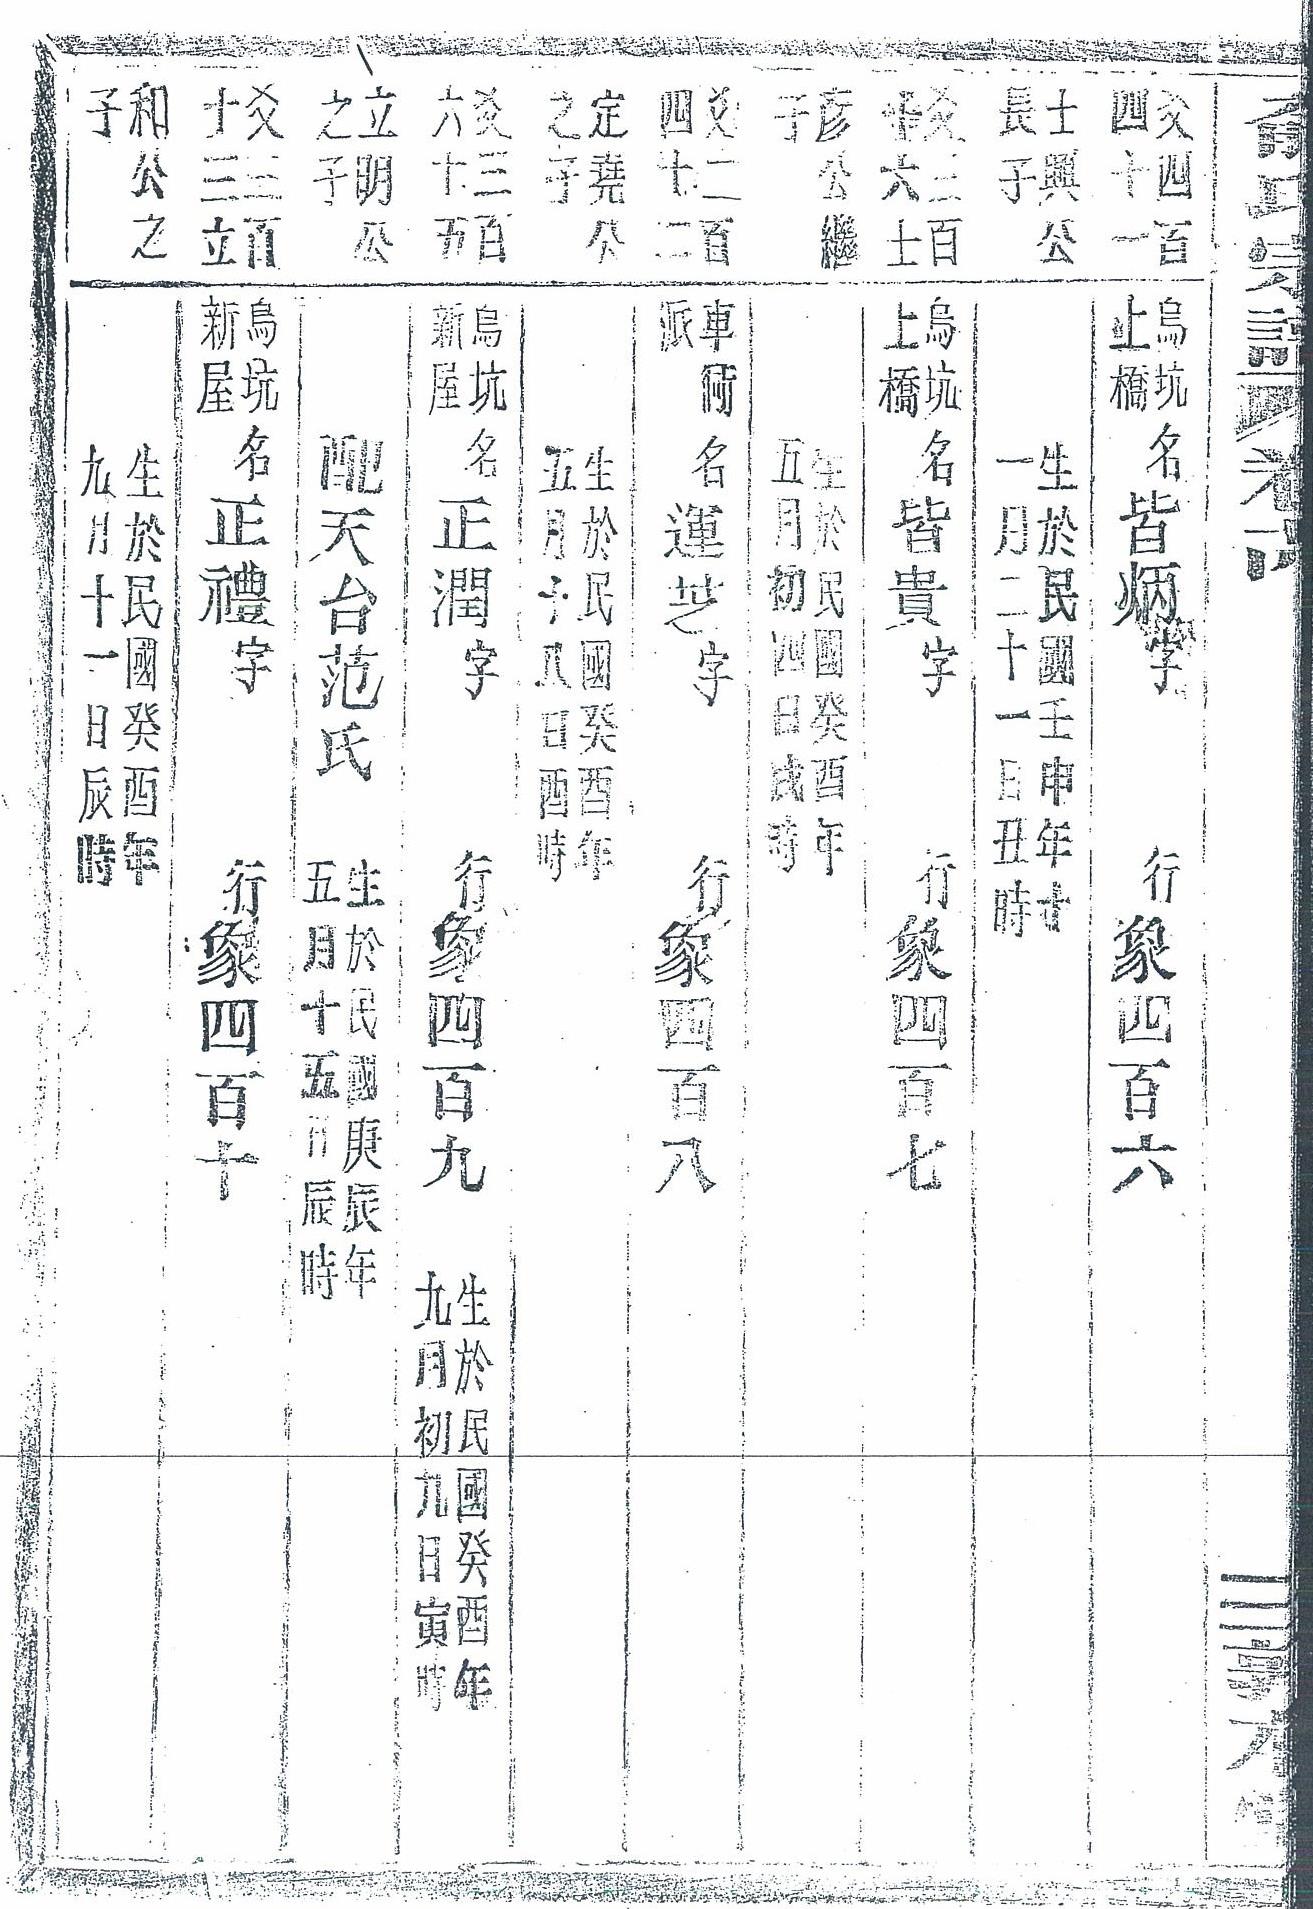 氏宗譜 卷
三
爻四百
四十一
士興公
長子
烏坑
上橋
名皆炳字
行象四百六
生於民國壬申年十
一月二十一日丑時
爻三百
六士
彥公繼
子
烏坑
上橋
名皆貴字
行象四百七
生於民國癸酉年
五月初四日戌時
爻二百
四十二
定堯公
之子
車
派
名運芝字
行象四百八
生於民國癸酉年
五月十八日酉時
爻三百
六十五
立明公
之子
烏坑
新屋
名正潤字
行象四百九
生於民國癸酉年
九月初九日寅時
配天台范氏
生於民國庚辰年
五月十五日辰時
爻三百
十三立
和公之
子
烏坑
新屋
名正禮字
行象四百十
生於民國癸酉年
九月十一日辰時